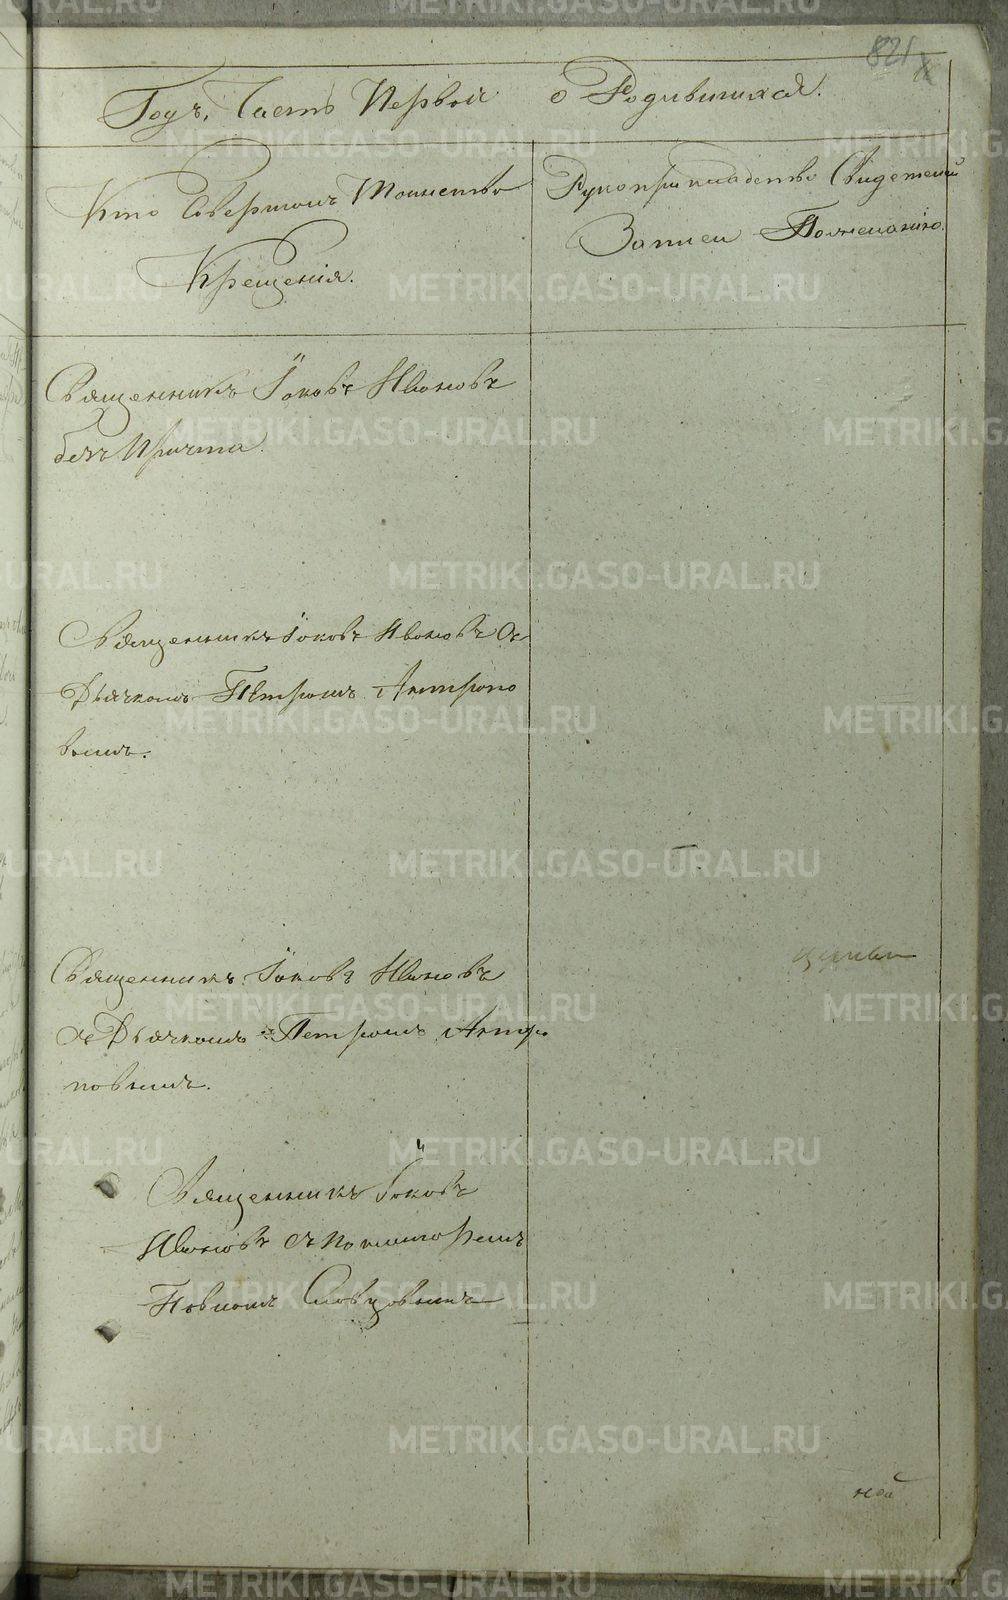 821
Годъ, Часть Первой о Родившихся.
Кто Совершалъ Таинство
Крещенія.
Рукоприкладство Свидетелей
Записи По желанію.
Священникъ Іаковъ Ивановъ
безъ Причта.
Священникъ Іаковъ Ивановъ Съ
Дьячкомъ Петромъ Антропо
вымъ.
Священникъ Іаковъ Ивановъ
съ Дьячкомъ Петромъ Антро
повымъ.
Священникъ Іаковъ
Ивановъ съ Пономаремъ
Павломъ Словцовымъ
церкви
ной
METRIKI.GASO-URAL.RU